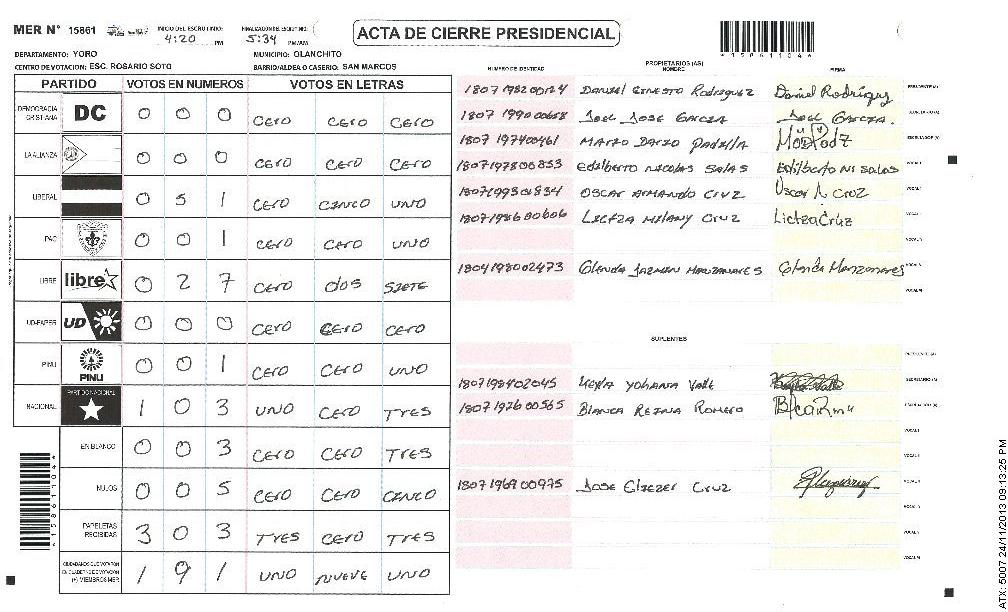 MER N° 15861 INICIO DEL ESCRUTINIO: 4:20 PM FINALIZACION DE ESCRUTINIO: 5:34 PM/AM
ACTA DE CIERRE PRESIDENCIAL
*15861104*
DEPARTAMENTO: YORO MUNICIPIO: OLANCHITO
CENTRO DE VOTACION: ESC. ROSARIO SOTO BARRIO/ALDEA O CASERIO: SAN MARCOS
PARTIDO VOTOS EN NUMEROS VOTOS EN LETRAS
DEMOCRACIA CRISTIANA DC 0 0 0 CERO CERO CERO
LA ALIANZA 0 0 0 CERO CERO CERO
LIBERAL 0 5 1 CERO CINCO UNO
PAC 0 0 1 CERO CERO UNO
LIBRE libre 0 2 7 CERO DOS SIETE
UD-FAPER UD 0 0 0 CERO CERO CERO
PINU PINU 0 0 1 CERO CERO UNO
NACIONAL PARTIDO NACIONAL 1 0 3 UNO CERO TRES
EN BLANCO 0 0 3 CERO CERO TRES
NULOS 0 0 5 CERO CERO CINCO
PAPELETAS RECIBIDAS 3 0 3 TRES CERO TRES
CIUDADANOS QUE VOTARON EN CUADERNO DE VOTACION (+) MIEMBROS MER 1 9 1 UNO NUEVE UNO
PROPIETARIOS (AS)
NUMERO DE IDENTIDAD NOMBRE FIRMA
1807198200124 DANIEL ERNESTO Rodriguez Daniel Rodriguez PRESIDENTE (A)
1807199000658 JOEL JOSE GARCIA JOEL GARCIA. SECRETARIO (A)
1807197400461 MARIO DARIO PADILLA ESCRUTADOR (A)
1807197800833 Edilberto NICOLAS SALAS Edilberto Ni salas VOCAL I
1807199301834 OSCAR ARMANDO CRUZ Oscar A Cruz VOCAL II
1807198600606 LICTZA MELANY CRUZ Lictza Cruz
1804198002473 Glenda JAZMIN MANZANARES Glenda Manzanares
SUPLENTES
PRESIDENTE (A)
1807198402045 Keyla YOHANA Valle SECRETARIO (A)
1807197600565 BLANCA REINA ROMERO ESCRUTADOR (A)
1807196900975 JOSE ELIEZER CRUZ
ATX: 5007 24/11/2013 09:13:25 PM